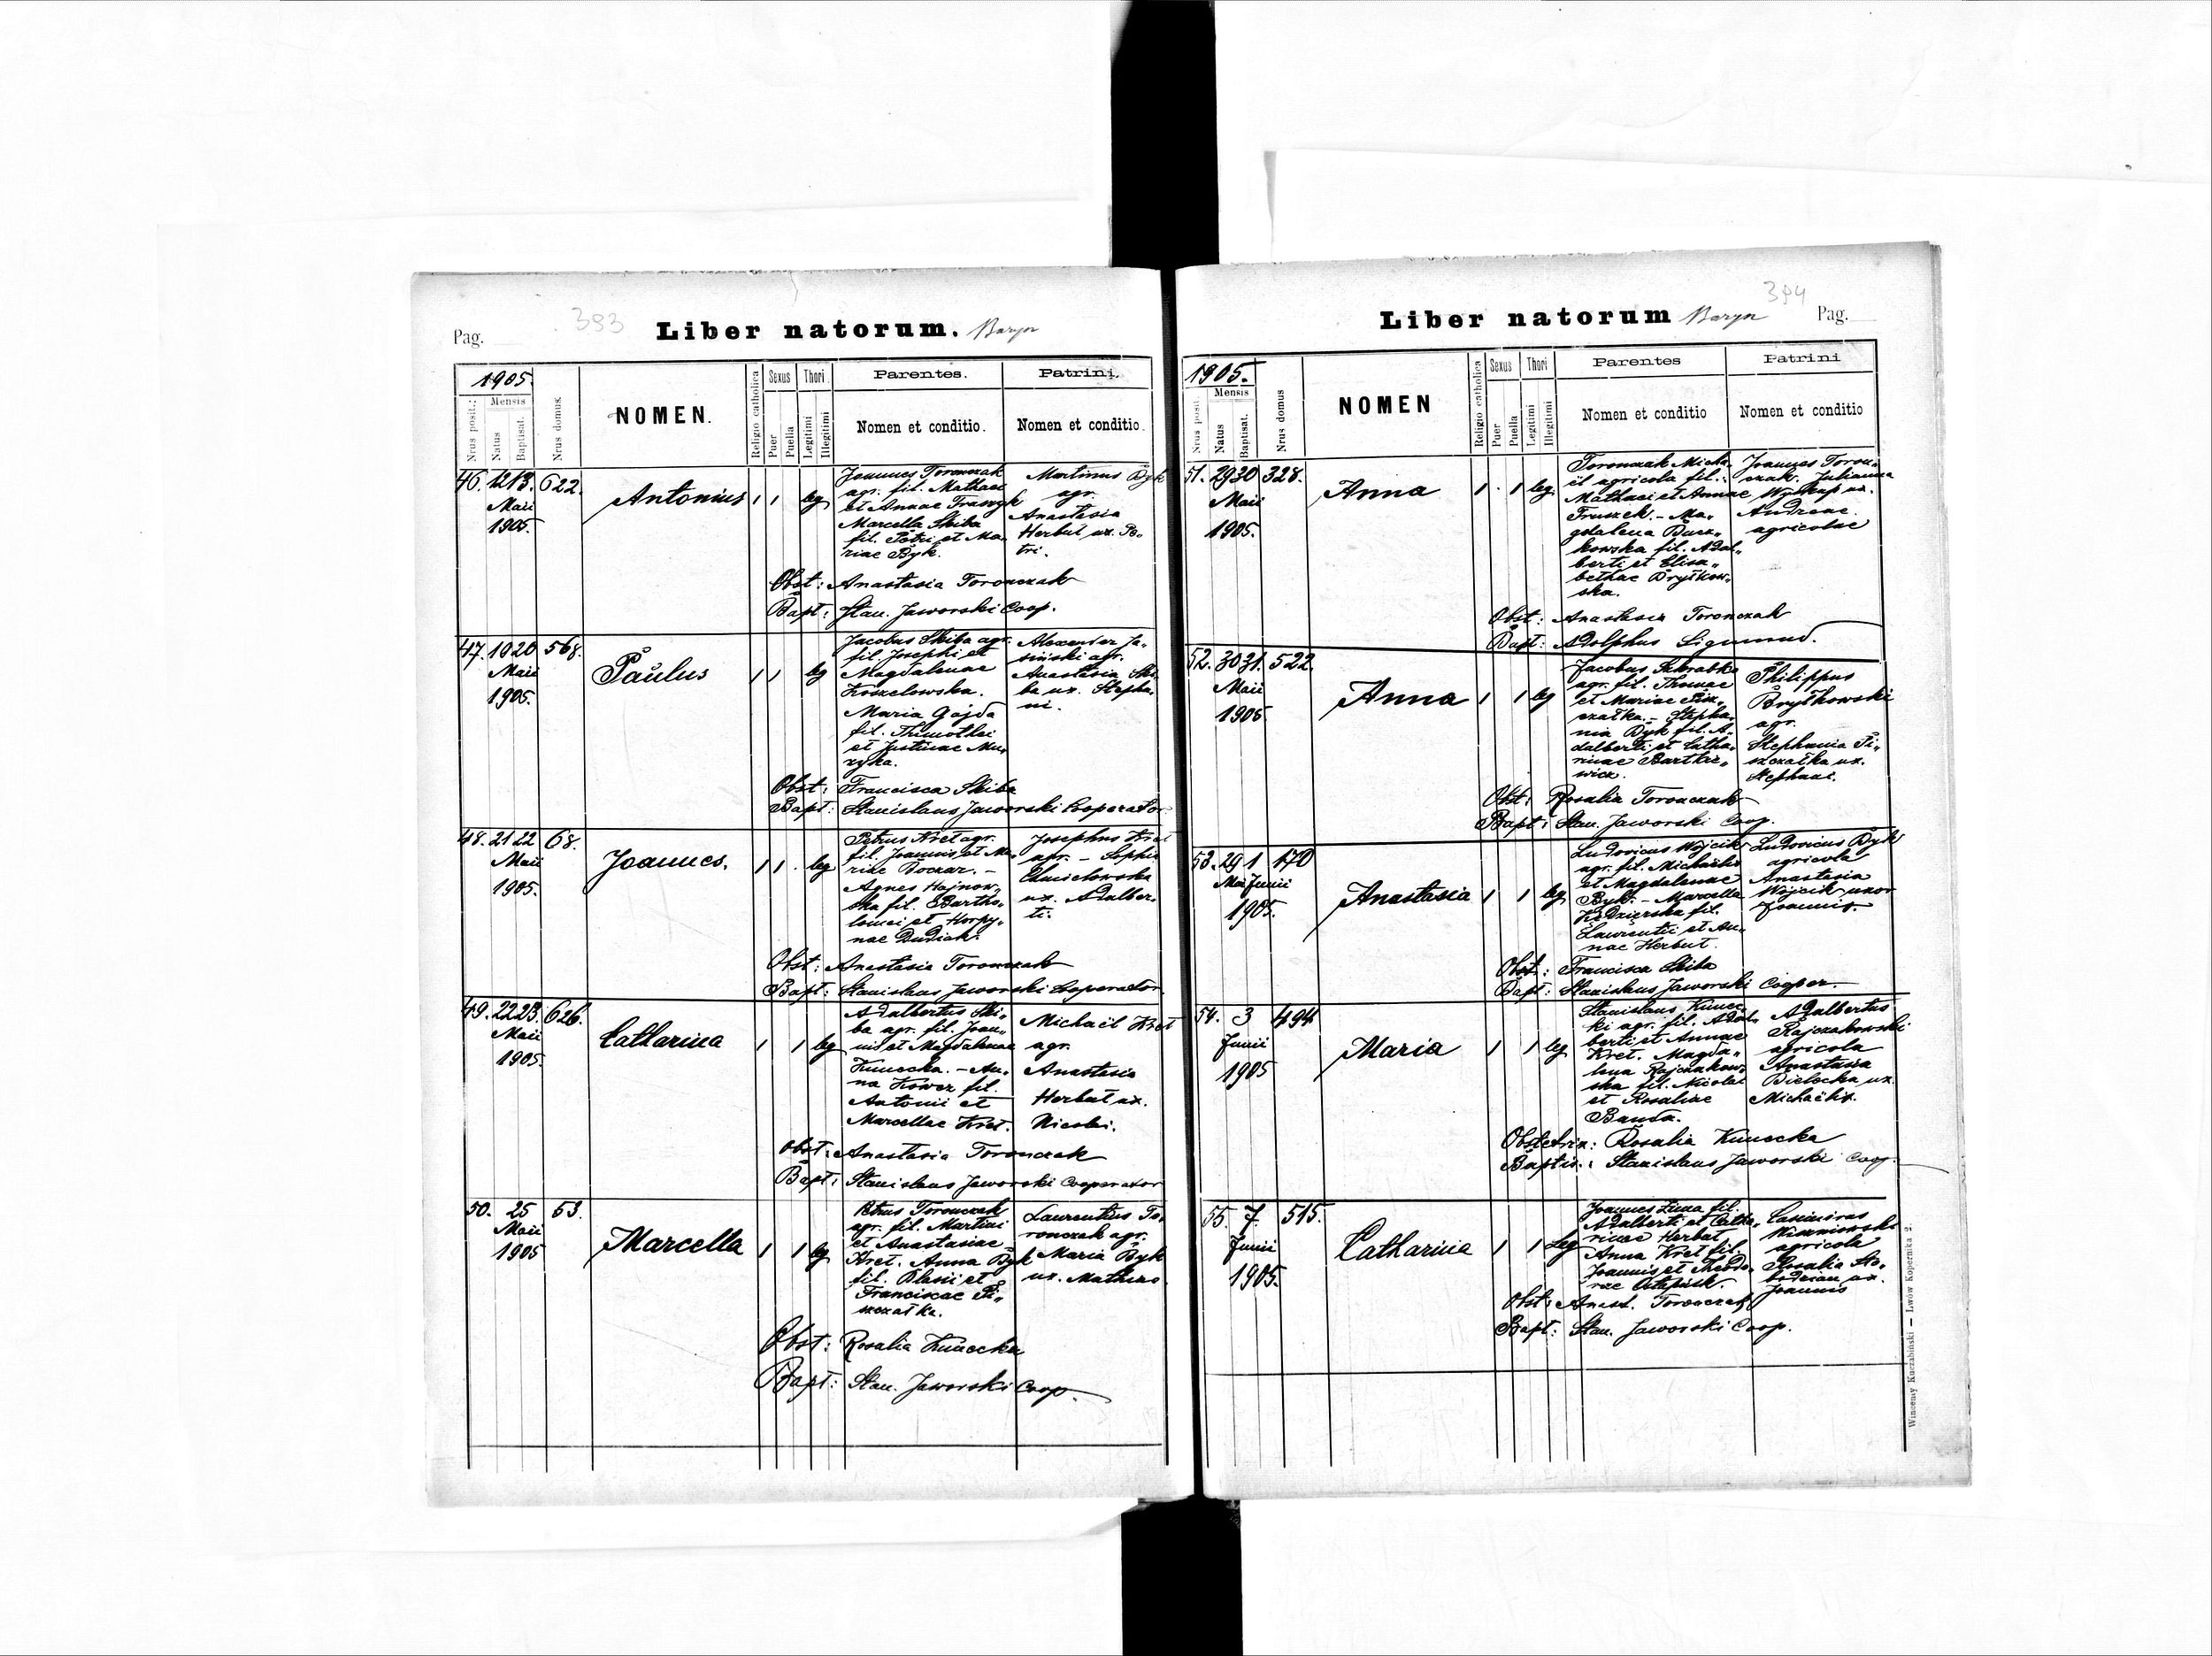 393
Pag.
Liber natorum. Baryn
1905.
Nrus posit.:
Mensis
Natus
Baptisat.
Nrus domus.
NOMEN.
Religio catholica
Sexus
Puer
Puella
Thori
Legitimi
Illegitimi
Parentes.
Nomen et conditio.
Patrini.
Nomen et conditio.
46. 12 13. 622.
Maii
1905.
Antonius
1 1 leg
Joannes Toronczak
agr. fil. Mathaei
et Annae
Marcella Skiba
fil. Petri et Ma,,
riae Byk.
Martinus Byk
agr.
Anastasia
Herbut ux. Pe,,
tri.
Obst: Anastasia Toronczak
Bapt: Stan. Jaworski Coop.
47. 19 20 568.
Maii
1905.
Paŭlus
1 1 leg
Jacobus Skiba agr.
fil. Josephi et
Magdalenae
Koszelowska.
Maria Gajda
fil. Thimothei
et Justinae Mu,,
zyka.
Alexander Ja,,
siński agr.
Anastasia Ski,,
ba ux. Stepha,,
ni.
Obst: Francisca Skiba
Bapt: Stanislaus Jaworski Cooperator
48. 21 22 68.
Maii
1905.
Joannes.
1 1 . leg
Petrus Kret agr.
fil. Joannis et Ma,,
riae Boczar. -
Agnes Hajnow,,
ska fil. Bartho,,
lomei et Horpy,,
nae Dudiak.
Josephus Kret
agr. - Sophia
Chmielowska
ux. Adalber,,
ti.
Obst: Anastasia Toronczak
Bapt: Stanislaus Jaworski Cooperator
49. 22 23. 626.
Maii
1905.
Catharina
1 1 leg
Adalbertus Ski,,
ba agr. fil. Joan,,
nis et Magdalenae
Kunecka. - An,,
na Kowcz fil.
Antonii et
Marcellae Kret.
Michaël Kret
agr.
Anastasia
Herbut ux.
Nicolai.
Obst: Anastasia Toronczak
Bapt: Stanislaus Jaworski Cooperator
50. 25 53.
Maii
1905
Marcella
1 1 leg
Petrus Toronczak
agr. fil. Martini
et Anastasiae
Kret. Anna Byk
fil. Blasii et
Franciscae Pi,,
szczatka.
Laurentius To,,
ronczak agr.
Maria Byk
ux. Mathias
Obst: Rosalia Kunecka
Bapt: Stan. Jaworski Coop.
394
Liber natorum Baryn
Pag.
1905.
Nrus posit.
Mensis
Natus
Baptisat.
Nrus domus
NOMEN
Religio catholica
Sexus
Puer
Puella
Thori
Legitimi
Illegitimi
Parentes
Nomen et conditio
Patrini
Nomen et conditio
51. 29 30 328.
Maii
1905.
Anna
1 . 1 leg
Toronczak Micha,,
ël agricola fil.
Mathaei et Annae
Fruszek. - Ma,,
gdalena Bucz,,
kowska fil. Adal,,
berti et Elisa,,
bethae Bryťkow,,
ska.
Joannes Toron,,
czak. Julianna
ux.
Andreae
agricolae
Obst: Anastasia Toronczak
Bapt: Adolphus Sigmund.
52. 30 31. 522.
Maii
1905.
Anna
1 1 leg
Jacobus
agr. fil. Thomae
et Mariae Pisz,,
czatka. - Stepha,,
nia Byk fil. A,,
dalberti et Catha,,
rinae Bartkie,,
wicz.
Philippus
Bryťkowski
agr.
Stephania Pi,,
szczatka ux.
Stephani.
Obst: Rosalia Toronczak
Bapt: Stan. Jaworski Coop.
53. 29 1 170
Maii Junii
1905.
Anastasia
1 1 leg
Ludovicus Wójcik
agr. fil. Michaëlis
et Magdalenae
Byk. - Marcella
Kędzierska fil.
Laurentii et An,,
nae Herbut.
Ludovicus Byk
agricola
Anastasia
Wójcik uxor
Joannis.
Obst: Francisca Skiba
Bapt: Stanislaus Jaworski Cooper.
54. 3 494
Junii
1905
Maria
1 1 leg
Stanislaus Kunec,,
ki agr. fil. Adal,,
berti et Annae
Kret. Magda,,
lena Rajczakow,,
ska fil. Nicolai
et Rosaliae
Banda.
Adalbertus
Rajczakowski
agricola
Anastasia
Bielecka ux.
Michaëlis.
Obstetrix: Rosalia Kunecka
Baptis.: Stanislaus Jaworski Coop.
55. 7 515.
Junii
1905.
Catharina
1 1 Leg
Joannes fil.
Adalberti et Catha,,
rinae Herbut
Anna Kret fil.
Joannis et Theodo,,
rae
Casimirus
agricola
Rosalia Sło,,
bodzian ux.
Joannis
Obst: Anast. Toronczak
Bapt: Stan. Jaworski Coop.
Wincenty Kuczabiński — Lwów Kopernika 2.